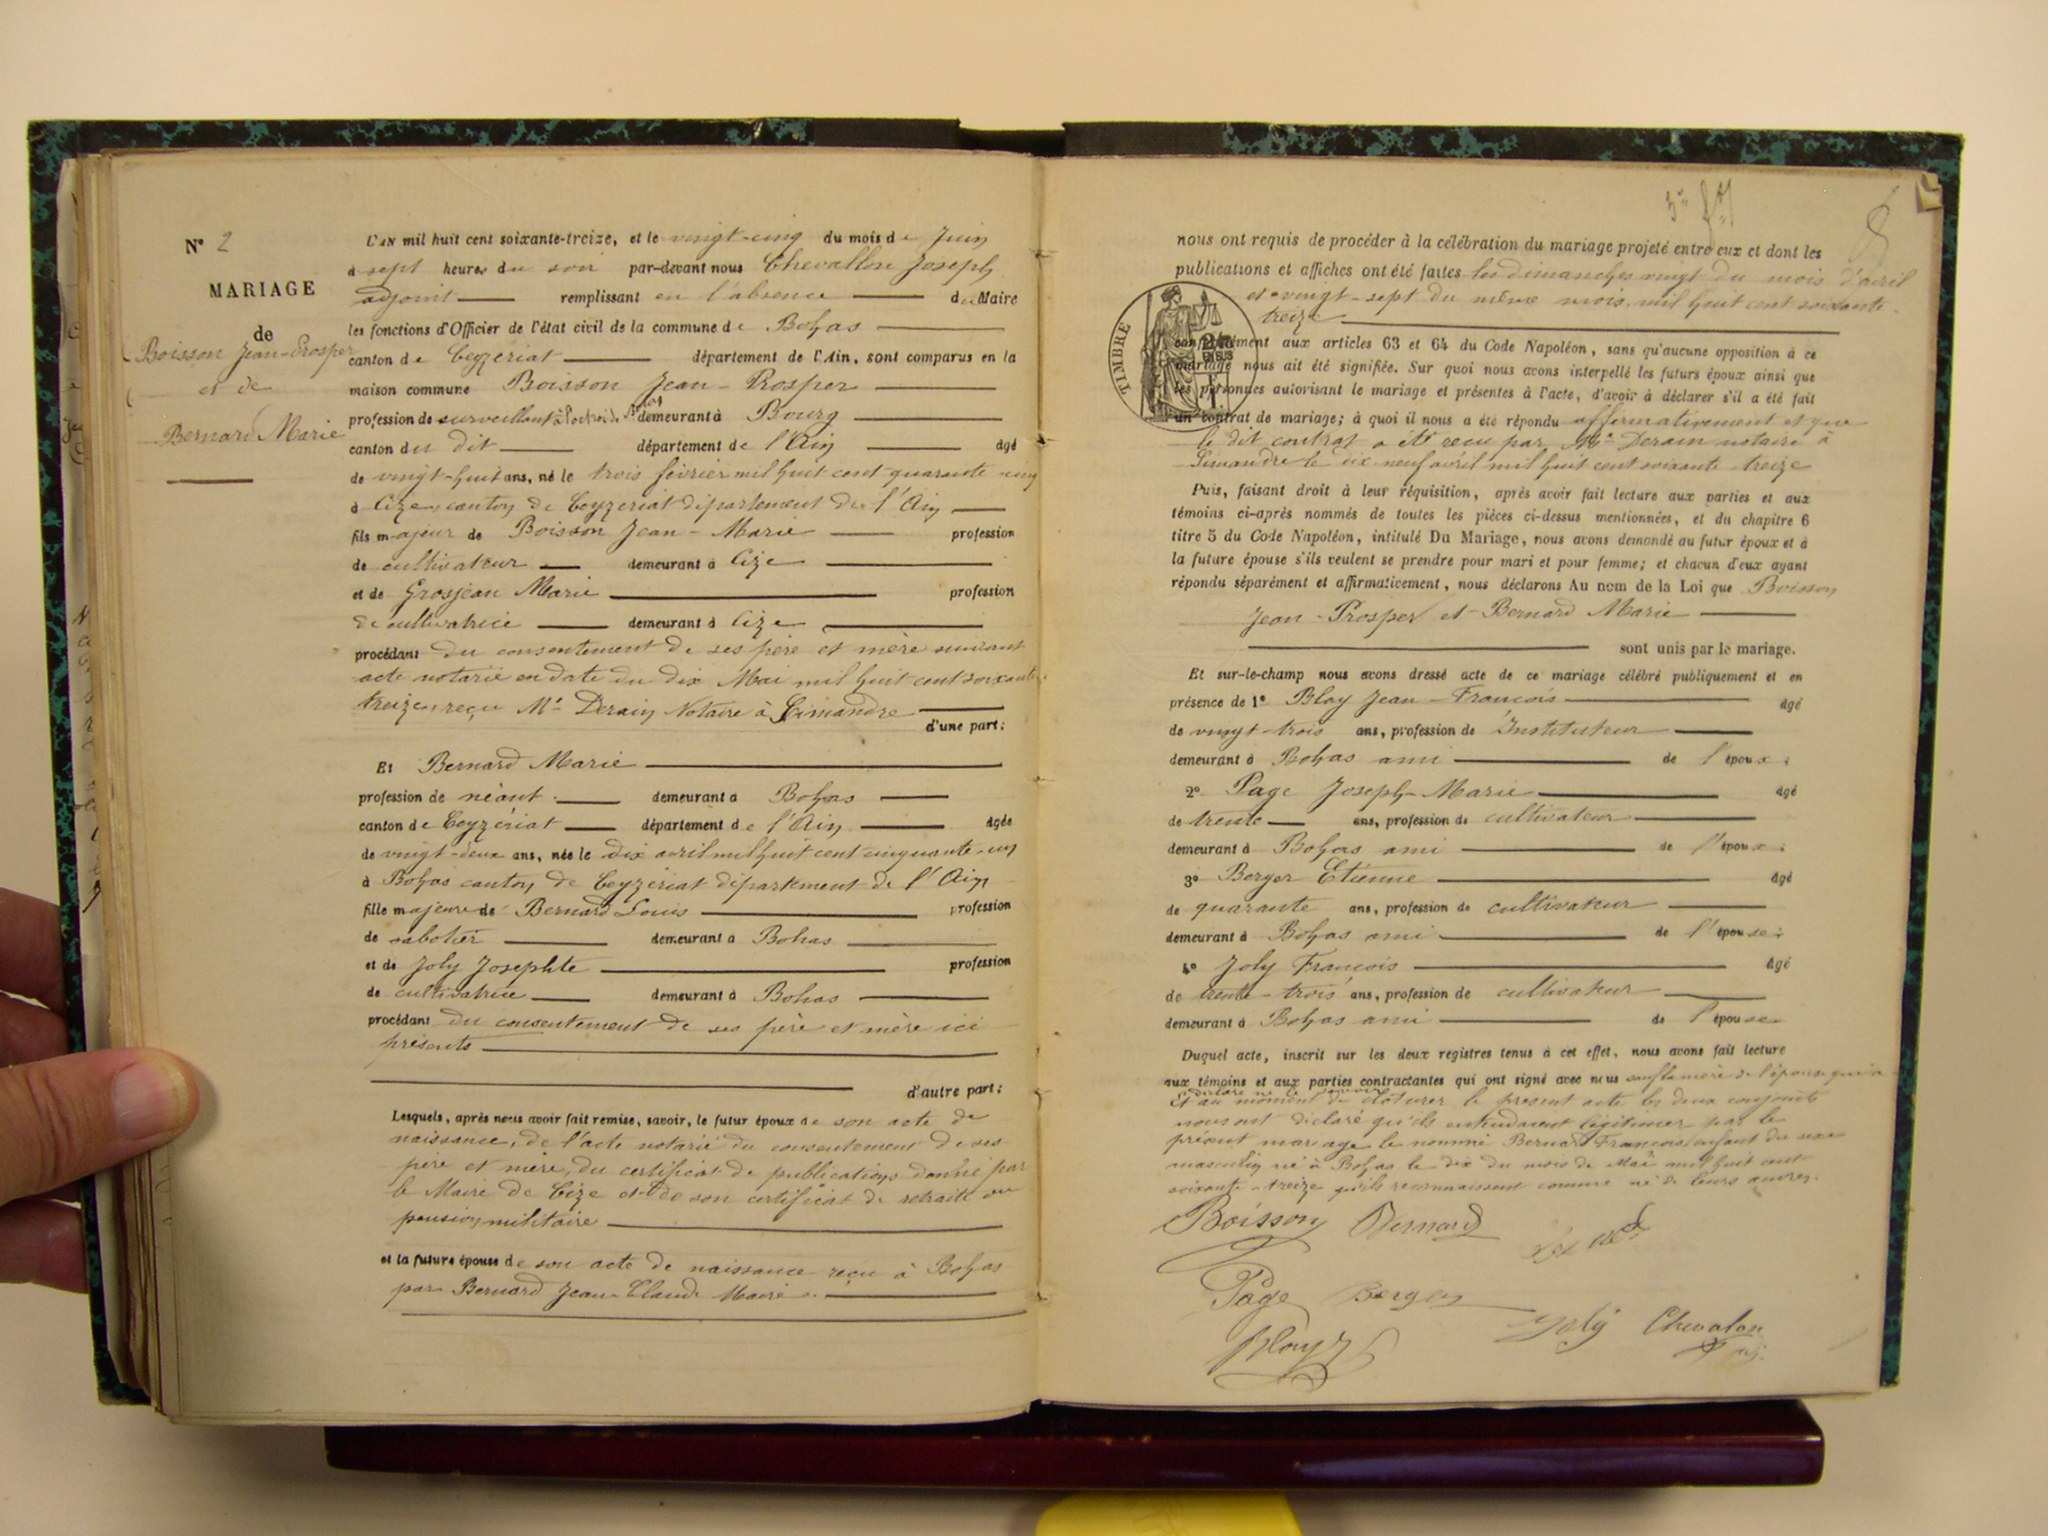 N° 2
MARIAGE
de
Boisson Jean-Prosper
et de
Bernard Marie
L'AN mil huit cent soixante-treize, et le vingt-cinq du mois de Juin
à sept heures du soir par-devant nous Chevallon Joseph
adjoint remplissant en l'absence du Maire
les fonctions d'Officier de l'état civil de la commune de Bohas
canton de Ceyzériat département de l'Ain, sont comparus en la
maison commune Boisson Jean-Prosper
profession de surveillant à l'octroi de demeurant à Bourg
canton du dit département de l'Ain âgé
de vingt-huit ans, né le trois février mil huit cent quarante-cinq
à Cize, canton de Ceyzeriat département de l'Ain
fils majeur de Boisson Jean-Marie profession
de cultivateur demeurant à Cize
et de Grosjean Marie profession
de cultivatrice demeurant à Cize
procédant du consentement de ses père et mère suivant
acte notarié en date du dix Mai mil huit cent soixante
treize, reçu Me Derain Notaire à Simandre
d'une part;
Et Bernard Marie
profession de néant demeurant à Bohas
canton de Ceyzériat département de l'Ain âgée
de vingt-deux ans, née le dix avril mil huit cent cinquante-un
à Bohas canton de Ceyzériat département de l'Ain
fille majeure de Bernard Louis profession
de sabotier demeurant à Bohas
et de Joly Josephte profession
de cultivatrice demeurant à Bohas
procédant du consentement de ses père et mère ici
présents
d'autre part;
Lesquels, après nous avoir fait remise, savoir, le futur époux de son acte de
naissance, de l'acte notarié du consentement de ses
père et mère, du certificat de publications donné par
le Maire de Cize et de son certificat de retraite ou
pension militaire
et la future épouse de son acte de naissance reçu à Bohas
par Bernard Jean-Claude Maire
nous ont requis de procéder à la célébration du mariage projeté entre eux et dont les
publications et affiches ont été faites les dimanches vingt du mois d'avril
et vingt-sept du même mois mil huit cent soixante
treize
TIMBRE
conformément aux articles 63 et 64 du Code Napoléon, sans qu'aucune opposition à ce
mariage nous ait été signifiée. Sur quoi nous avons interpellé les futurs époux ainsi que
les personnes autorisant le mariage et présentes à l'acte, d'avoir à déclarer s'il a été fait
un contrat de mariage; à quoi il nous a été répondu affirmativement et que
le dit contrat a été reçu par Me Derain notaire à
Simandre le dix-neuf avril mil huit cent soixante-treize
Puis, faisant droit à leur réquisition, après avoir fait lecture aux parties et aux
témoins ci-après nommés de toutes les pièces ci-dessus mentionnées, et du chapitre 6
titre 5 du Code Napoléon, intitulé Du Mariage, nous avons demandé au futur époux et à
la future épouse s'ils veulent se prendre pour mari et pour femme; et chacun d'eux ayant
répondu séparément et affirmativement, nous déclarons Au nom de la Loi que Boisson
Jean-Prosper et Bernard Marie
sont unis par le mariage.
Et sur-le-champ nous avons dressé acte de ce mariage célébré publiquement et en
présence de 1° Bloy Jean-François âgé
de vingt-trois ans, profession de Instituteur
demeurant à Bohas ami de l'époux;
2° Page Joseph-Marie âgé
de trente ans, profession de cultivateur
demeurant à Bohas ami de l'époux;
3° Berger Etienne âgé
de quarante ans, profession de cultivateur
demeurant à Bohas ami de l'épouse;
4° Joly François âgé
de trente-trois ans, profession de cultivateur
demeurant à Bohas ami de l'épouse
Duquel acte, inscrit sur les deux registres tenus à cet effet, nous avons fait lecture
aux témoins et aux parties contractantes qui ont signé avec nous sauf la mère de l'épouse qui a
déclaré ne le savoir
Et au moment de cloturer le présent acte les deux conjoints
nous ont déclaré qu'ils entendaient légitimer par le
présent mariage le nommé Bernard François enfant du sexe
masculin né à Bohas le dix du mois de Mai mil huit cent
soixante-treize qu'ils reconnaissent comme né de leurs œuvres.
Boisson Bernard
Page Berger
Bloy Joly Chevalon
adj.